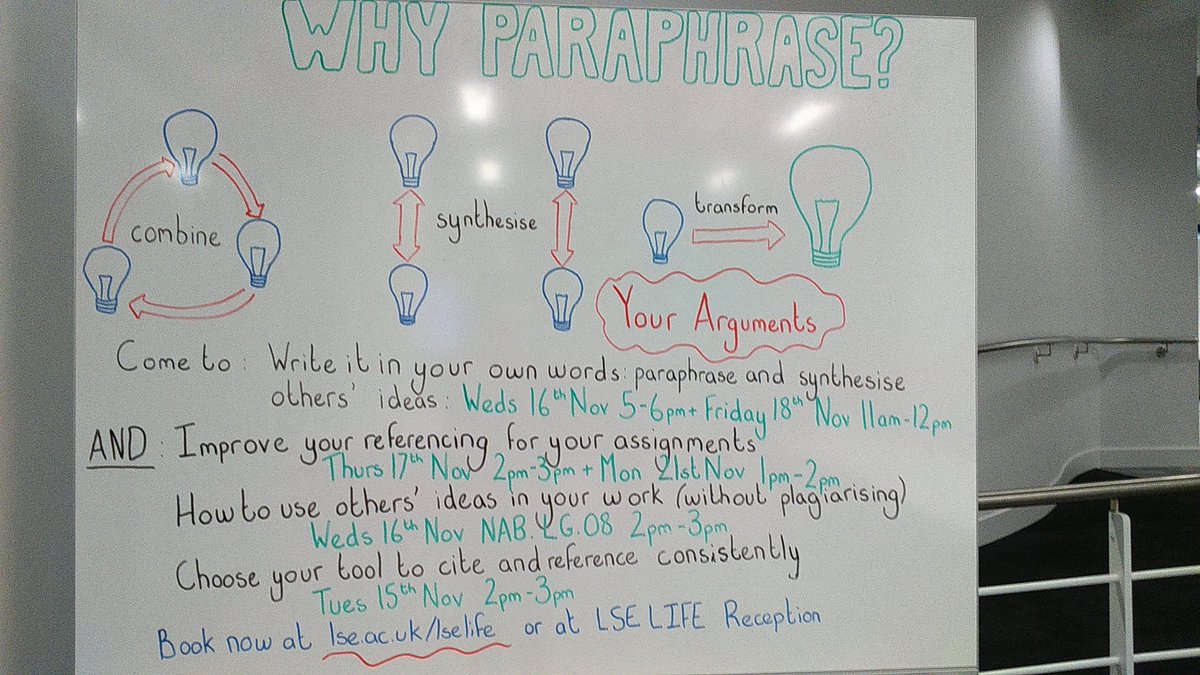 WHY PARAPHRASE?
combine
synthesise
transform
Your Arguments
Come to: Write it in your own words: paraphrase and synthesise
others' ideas: Weds 16th Nov 5-6pm + Friday 18th Nov 11am-12pm
AND: Improve your referencing for your assignments
Thurs 17th Nov 2pm-3pm + Mon 21st Nov 1pm-2pm
How to use others' ideas in your work (without plagiarising)
Weds 16th Nov NAB.LG.08 2pm-3pm
Choose your tool to cite and reference consistently
Tues 15th Nov 2pm-3pm
Book now at lse.ac.uk/lselife or at LSE LIFE Reception